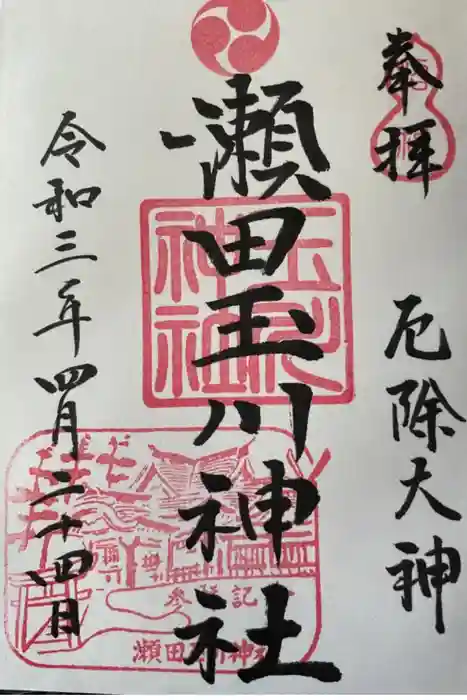 奉拝
厄除大神
瀬田玉川神社
令和三年四月二十四日
玉川
神社
参拝記
瀬田玉川神社